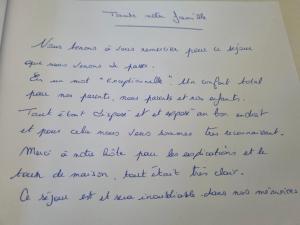 Toute notre famille
Nous tenons à vous remercier pour ce séjour
que nous venons de passer.
En un mot "exceptionnelle" Un confort total
pour nos parents, nous parents et nos enfants.
Tout était disposé et et exposé au bon endroit
et pour cela nous vous sommes très reconnaissant.
Merci à notre hôte pour les explications et le
tour de maison, tout était très clair.
Ce séjour est et sera inoubliable dans nos mémoires